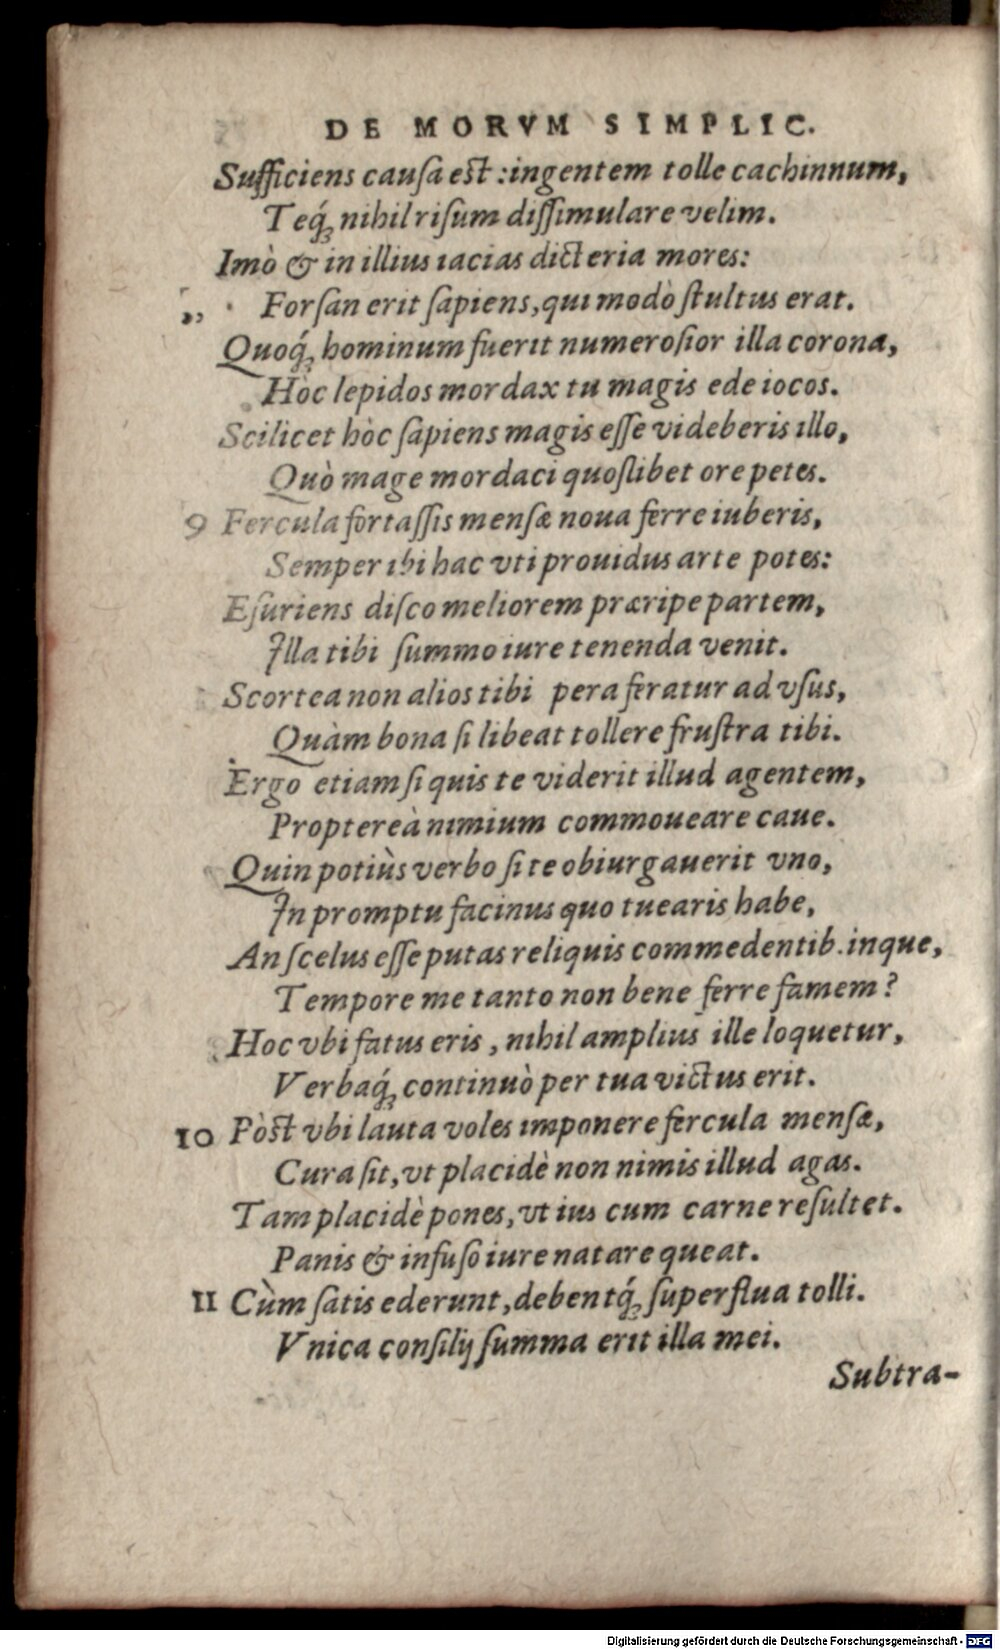 DE MORVM SIMPLIC.
Sufficiens cauſa est: ingentem tolle cachinnum,
Teq́; nihil riſum diſſimulare velim.
Imò & in illius iacias dicteria mores:
„ Forſan erit ſapiens, qui modò ſtultus erat.
Quoq́; hominum fuerit numeroſior illa corona,
Hòc lepidos mordax tu magis ede iocos.
Scilicet hòc ſapiens magis eſſe videberis illo,
Quò mage mordaci quoſlibet ore petes.
9 Fercula fortaſſis menſæ noua ferre iuberis,
Semper ibi hac vti prouidus arte potes:
Eſuriens diſco meliorem præripe partem,
Illa tibi ſummo iure tenenda venit.
Scortea non alios tibi pera feratur ad vſus,
Quàm bona ſi libeat tollere fruſtra tibi.
Ergo etiam ſi quis te viderit illud agentem,
Propterea̓ nimium commoueare caue.
Quin potiùs verbo ſi te obiurgauerit vno,
In promptu facinus quo tuearis habe,
An ſcelus eſſe putas reliquis commedentib. inque,
Tempore me tanto non bene ferre famem?
Hoc vbi fatus eris, nihil amplius ille loquetur,
Verbaq́; continuò per tua victus erit.
10 Pòst vbi lauta voles imponere fercula menſæ,
Cura ſit, vt placidè non nimis illud agas.
Tam placidè pones, vt ius cum carne reſultet.
Panis & infuſo iure natare queat.
11 Cùm ſatis ederunt, debentq́; ſuperflua tolli.
Vnica conſilij ſumma erit illa mei.
Subtra-
Digitalisierung gefördert durch die Deutsche Forschungsgemeinschaft - DFG